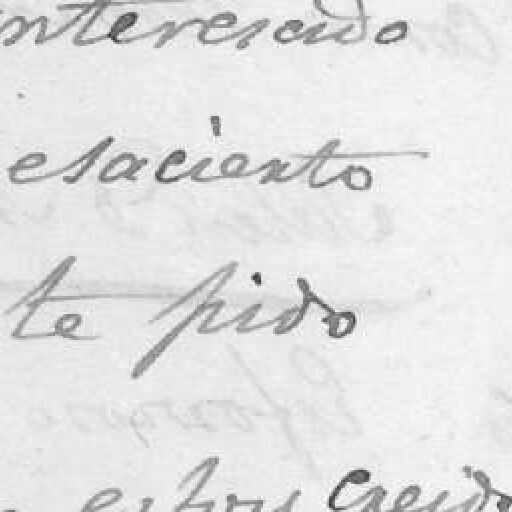 interesado
esaciento
te pido
estoy Creido